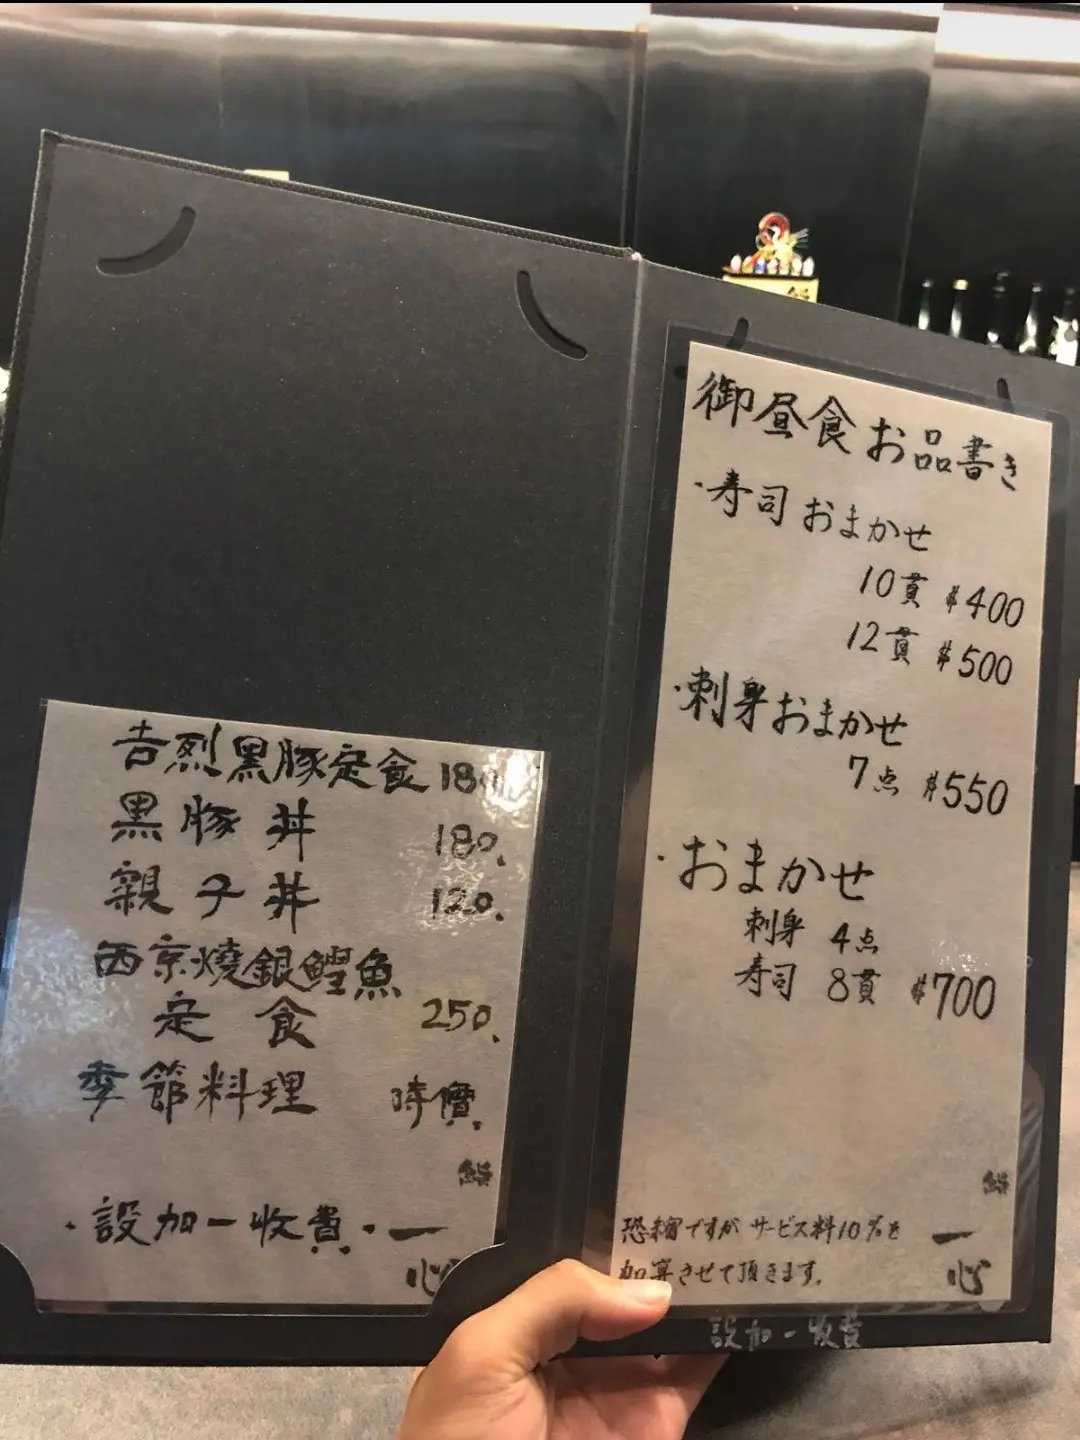 吉烈黒豚定食 180
黒豚丼 180.
親子丼 120.
西京燒銀鱈魚
定食 250.
季節料理 時價.
鮨
・設加一收費・一
心
御昼食お品書き
・寿司おまかせ
10貫 $400
12貫 $500
・刺身おまかせ
7点 $550
・おまかせ
刺身 4点
寿司 8貫 $700
鮨
恐縮ですが サービス料10%を 一
加算させて頂きます。 心
設加一收費